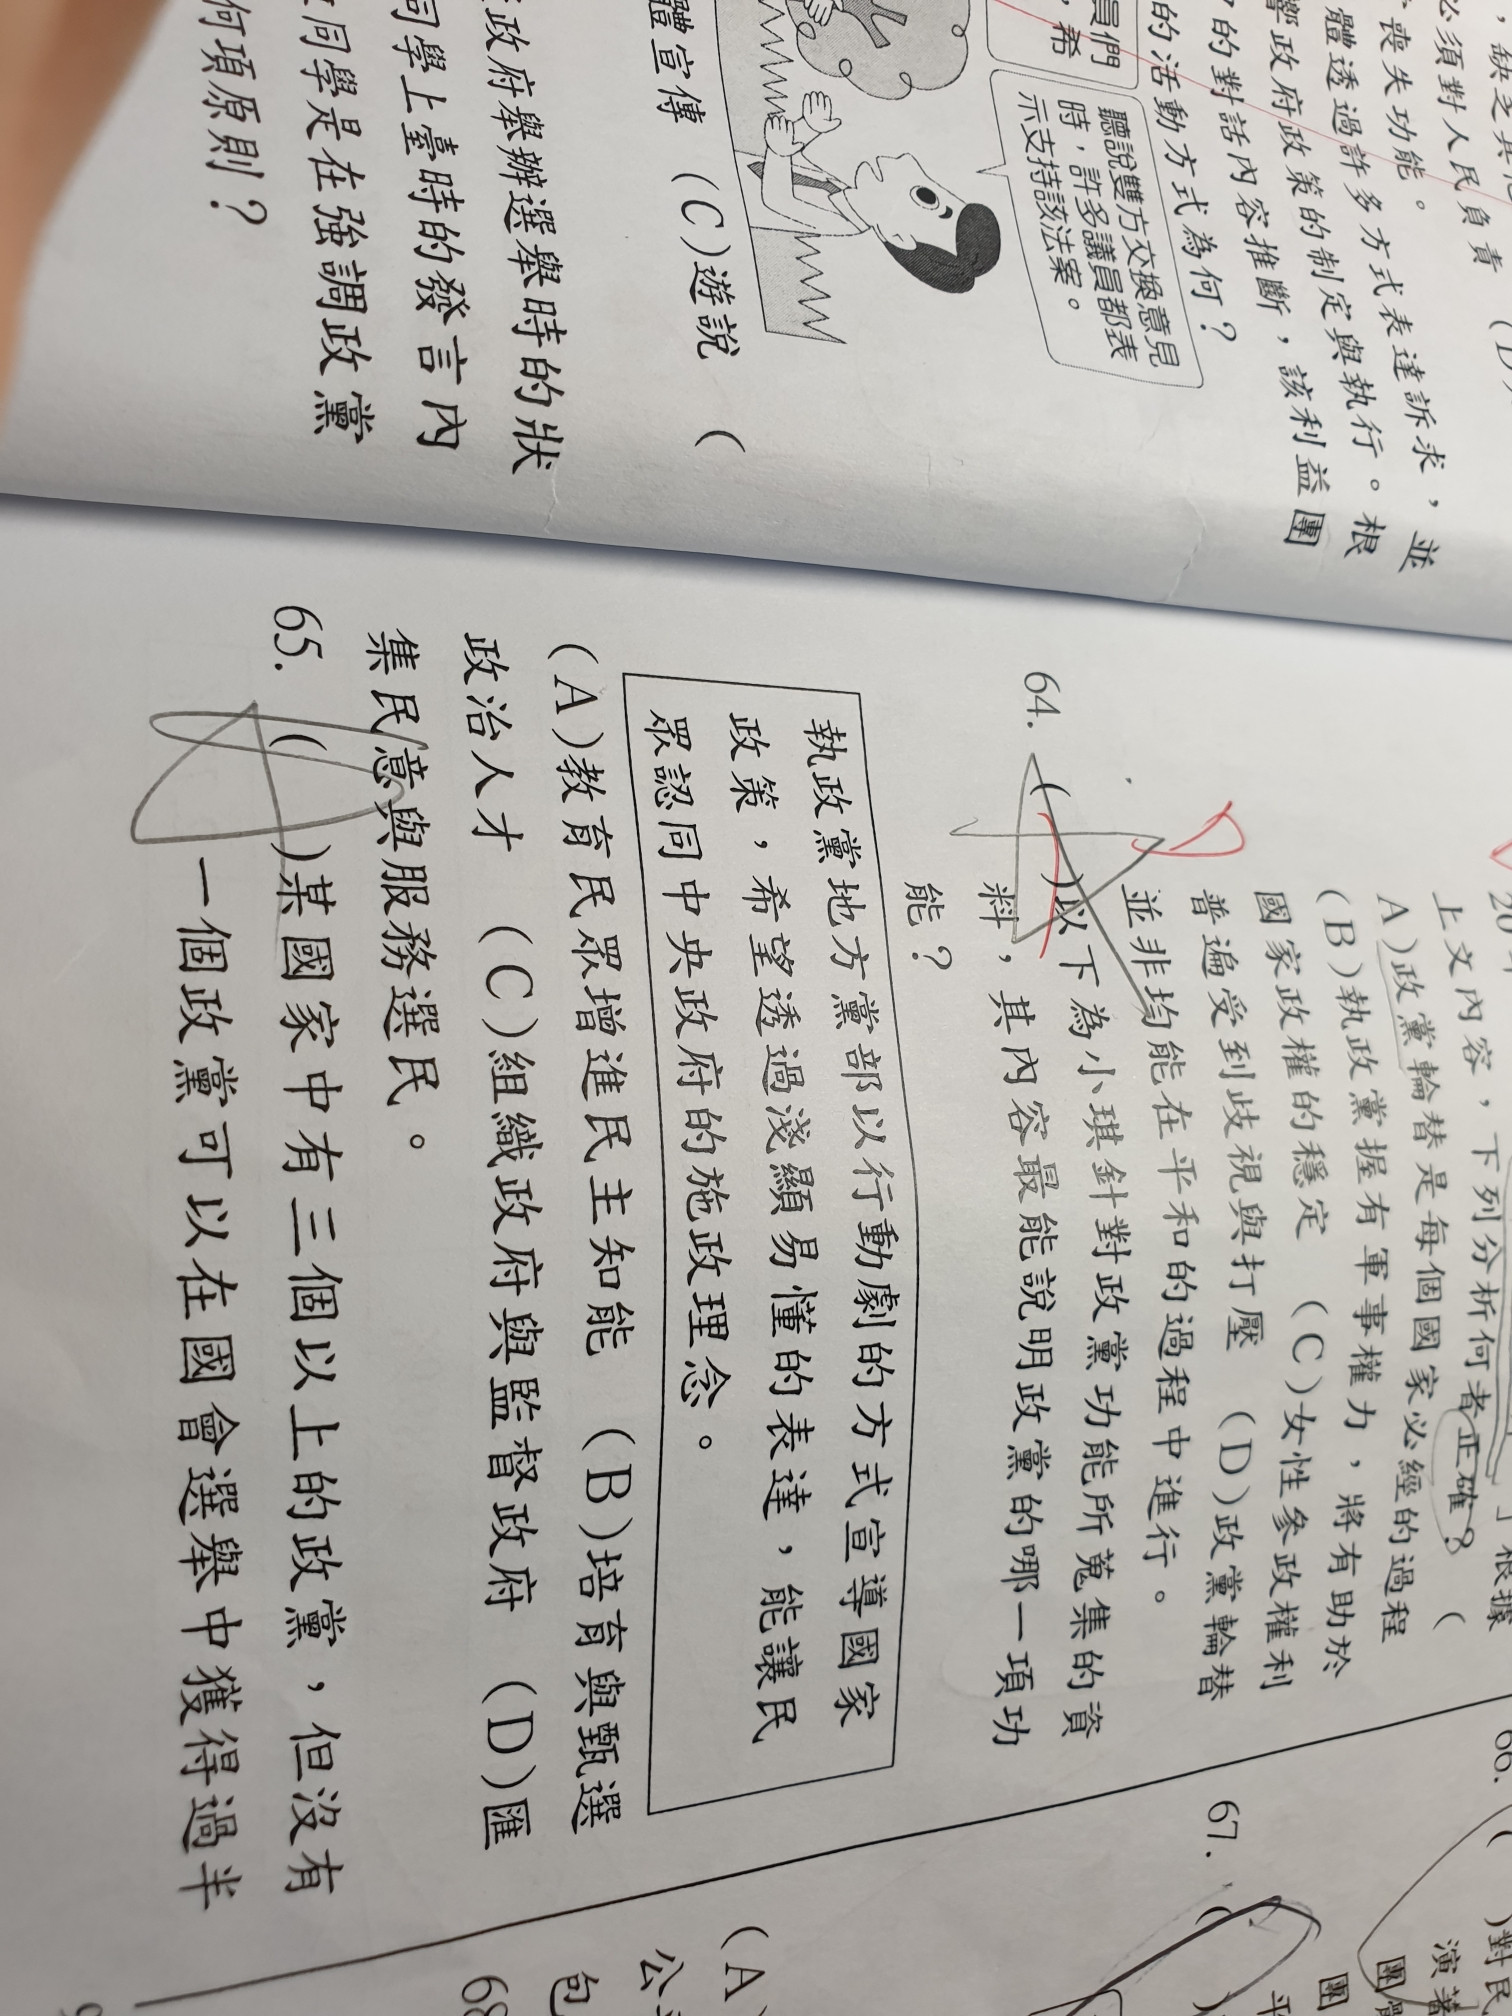 ，並
必須對人民負責
、喪失功能。
體透過許多方式表達訴求，並
響政府政策的制定與執行。根
的對話內容推斷，該利益團
的活動方式為何？
員們
，希
聽說雙方交換意見
時，許多議員都表
示支持該法案。
體宣傳　(C)遊說　(
政府舉辦選舉時的狀
同學上臺時的發言內
同學是在強調政黨
何項原則？
根據
上文內容，下列分析何者正確？　(
A)政黨輪替是每個國家必經的過程
(B)執政黨握有軍事權力，將有助於
國家政權的穩定　(C)女性參政權利
普遍受到歧視與打壓　(D)政黨輪替
並非均能在平和的過程中進行。
64. (　)以下為小琪針對政黨功能所蒐集的資
料，其內容最能說明政黨的哪一項功
能？
執政黨地方黨部以行動劇的方式宣導國家
政策，希望透過淺顯易懂的表達，能讓民
眾認同中央政府的施政理念。
(A)教育民眾增進民主知能　(B)培育與甄選
政治人才　(C)組織政府與監督政府　(D)匯
集民意與服務選民。
65. (　)某國家中有三個以上的政黨，但沒有
一個政黨可以在國會選舉中獲得過半
66. (　)對民
演
團
67. (
團
(A)
公
包
68